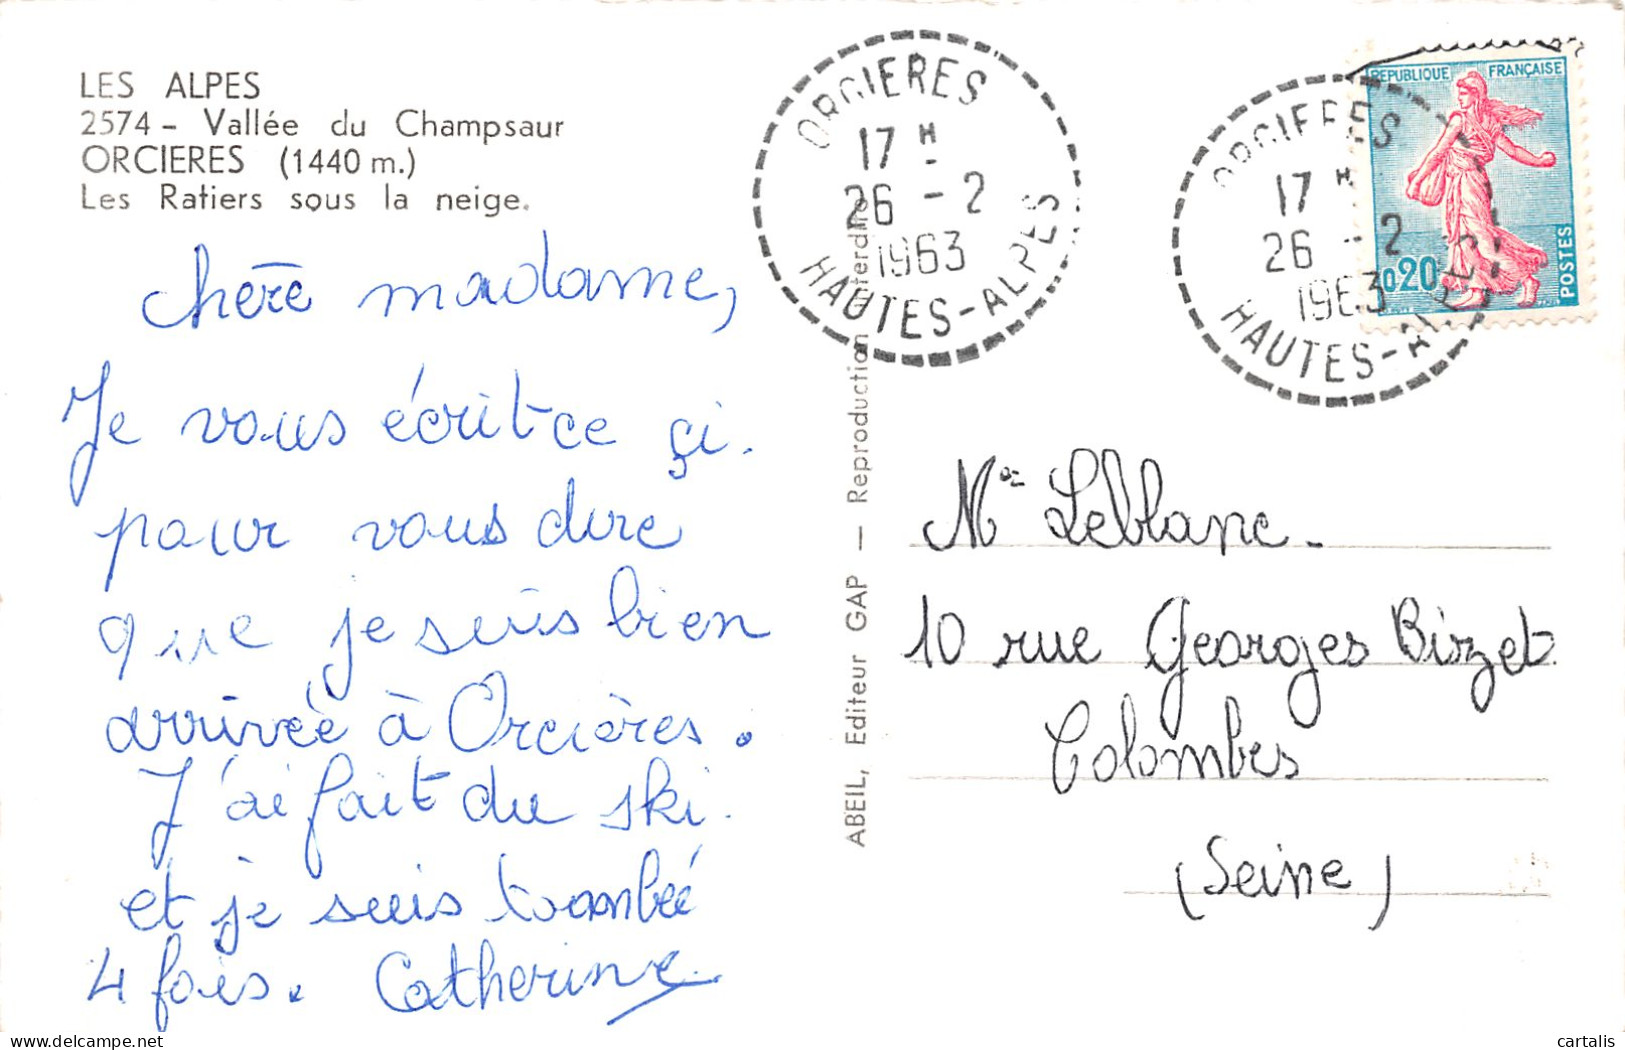 LES ALPES
2574 - Vallée du Champsaur
ORCIERES (1440 m.)
Les Ratiers sous la neige.
chère madame,
Je vous écrit ce çi.
pour vous dire
que je suis bien
arrivée à Orcières.
J'ai fait du ski.
et je suis tombée
4 fois. Catherine
ABEIL, Editeur GAP — Reproduction interdite
ORCIERES
17 H
26 - 2
1963
HAUTES-ALPES
ORCIERES
17 H
26 - 2
1963
HAUTES-ALPES
REPUBLIQUE FRANÇAISE
0,20
POSTES
Me Leblanc.
10 rue Georges Bizet
Colombes
(Seine)
cartalis